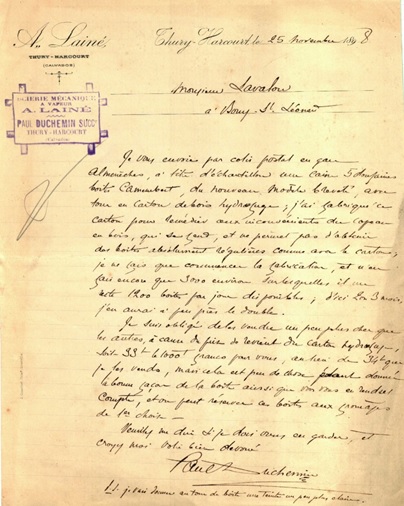 A. Lainé,
THURY-HARCOURT
(CALVADOS)
Thury-Harcourt, le 25 Novembre 1898
SCIERIE MÉCANIQUE
A VAPEUR
A. LAINÉ
PAUL DUCHEMIN SUCCR
THURY-HARCOURT
(Calvados)
Monsieur Lavalou
à Boucy St Léonard
Je vous envoie par colis postal en gare
Almenêches, à titre d'échantillon une caisse 5 douzaines
boîtes Camembert, du nouveau modèle breveté, avec
tour en carton de bois hydrofuge; j'ai fabriqué ce
carton pour remédier aux inconvénients du copeau
en bois, qui se fend, et ne permet pas d'obtenir
des boîtes absolument régulières comme avec le carton,
je ne fais que commencer la fabrication, et n'en
fais encore que 3000 environ sur lesquelles il me
reste 1200 boîtes par jour disponibles; d'ici 2 à 3 mois,
j'en aurai à peu près le double.
Je suis obligé de les vendre un peu plus cher que
les autres, à cause du prix de revient du carton hydrofuge,
soit 33f le 1000 franco par vous, au lieu de
que
je les vends, mais cela est peu de chose étant donné
le bonne façon de la boîte ainsi que vous vous en rendrez
compte, et on peut réserver ces boîtes aux fromages
de 1er choix.
Veuillez me dire si je dois vous en garder, et
croyez moi votre bien dévoué
Paul Duchemin
un peu plus claire.